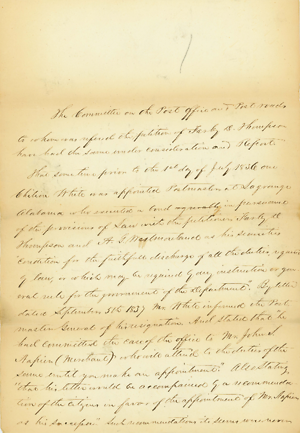 The Committee on the Post office and Post roads
to whom was referred the petition of Farley W. Thompson
have had the same under consideration and Report
That sometime prior to the 1st day of July 1836 one
White was appointed Postmaster at Lagrange
Alabama who executed a bond agreeably in pursuance
of the provisions of Law with the petitioner Farley W
Thompson and H. J. Westmoreland as his securities
Condition for the faithfull discharge of all the duties required
by law, or which may be required by any instruction or gen
eral rule for the government of the department. By letter
dated September 5th 1837 Mr White informed the Post
master General of his resignation And stated that "he
had committed the care of the office to Mr John S
Napier (Merchant) who will attend to the duties of the
same until you make an appointment." Also stating
"that his letter would be accompanied by a recommenda
tion of the citizens in favor of the appointment of Mr Napier
as his successor" Such recommendation it seems was never